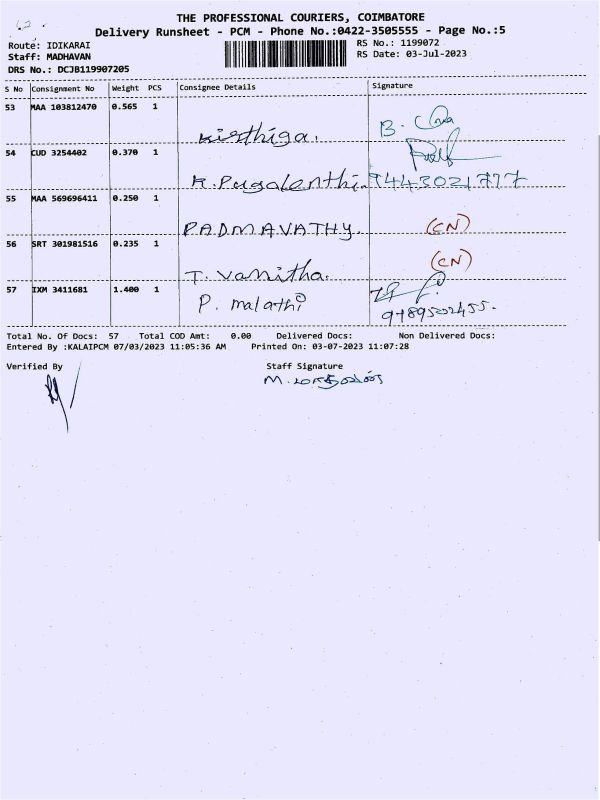 THE PROFESSIONAL COURIERS, COIMBATORE
Delivery Runsheet - PCM - Phone No.:0422-3505555 - Page No.:5
Route: IDIKARAI
RS No.: 1199072
Staff: MADHAVAN
RS Date: 03-Jul-2023
DRS No.: DCJB119907205
S No Consignment No Weight PCS Consignee Details Signature
53 MAA 103812470 0.565 1
Kirthiga.
54 CUD 3254402 0.370 1
K. Pugalenthi. 9443021777
55 MAA 569696411 0.250 1
PADMAVATHY. (CN)
56 SRT 301981516 0.235 1
T. Vanitha. (CN)
57 IXM 3411681 1.400 1
P. malathi
Total No. Of Docs: 57 Total COD Amt: 0.00 Delivered Docs: Non Delivered Docs:
Entered By :KALAIPCM 07/03/2023 11:05:36 AM Printed On: 03-07-2023 11:07:28
Verified By Staff Signature